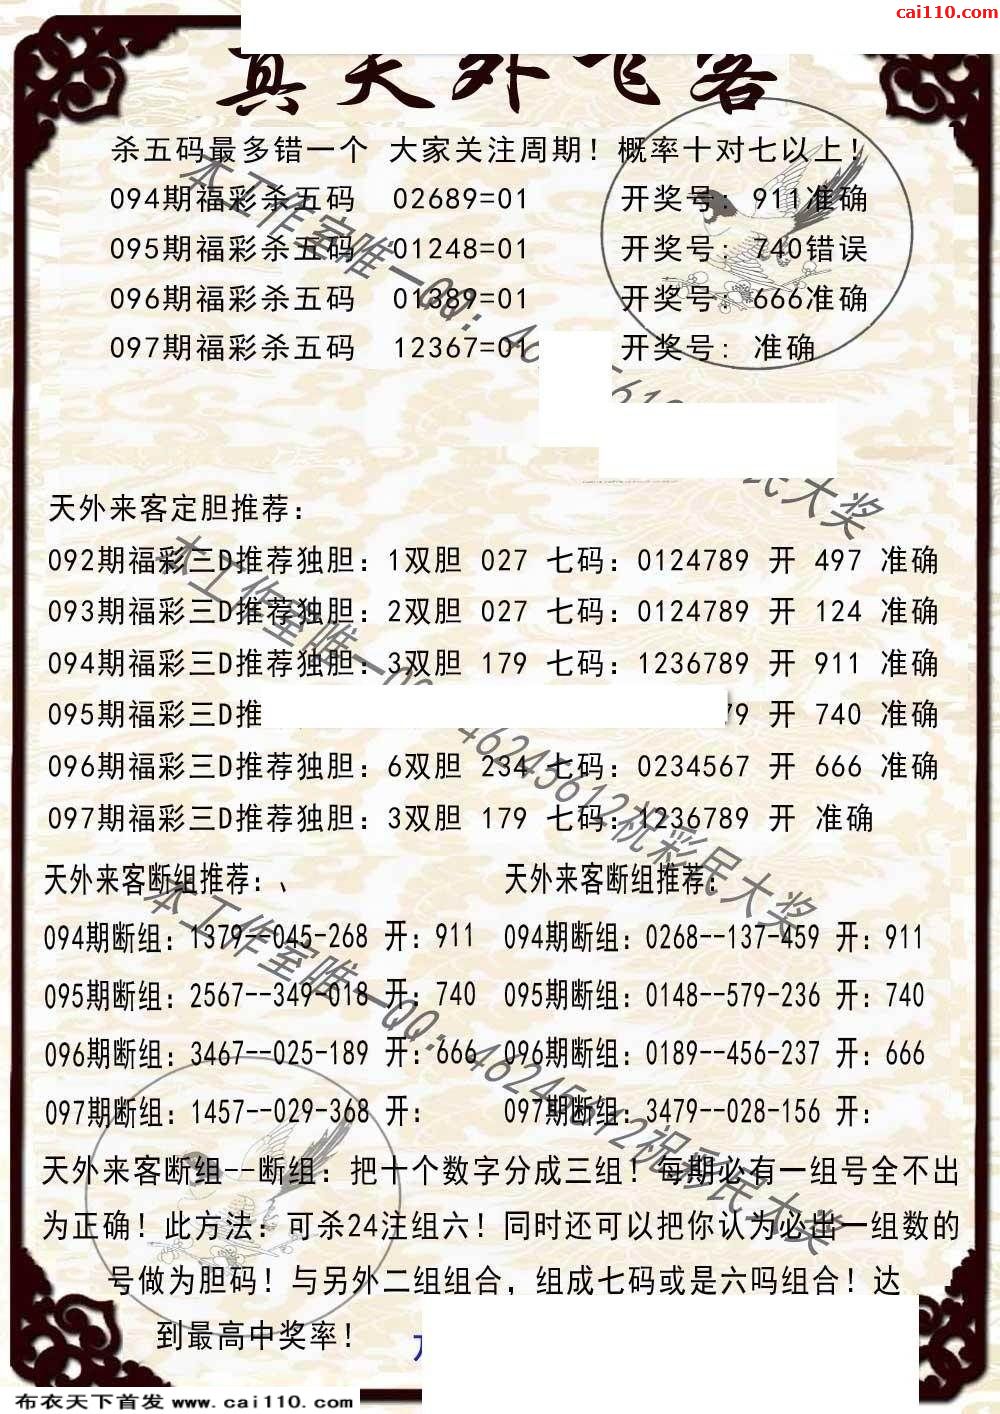 cai110.com
真天外飞客
杀五码最多错一个 大家关注周期！概率十对七以上！
094期福彩杀五码 02689=01 开奖号：911准确
095期福彩杀五码 01248=01 开奖号：740错误
096期福彩杀五码 01389=01 开奖号：666准确
097期福彩杀五码 12367=01 开奖号：准确
本工作室唯一QQ：46 5612 民大奖
天外来客定胆推荐：
092期福彩三D推荐独胆：1双胆 027 七码：0124789 开 497 准确
093期福彩三D推荐独胆：2双胆 027 七码：0124789 开 124 准确
094期福彩三D推荐独胆：3双胆 179 七码：1236789 开 911 准确
095期福彩三D推 79 开 740 准确
096期福彩三D推荐独胆：6双胆 234 七码：0234567 开 666 准确
097期福彩三D推荐独胆：3双胆 179 七码：1236789 开 准确
本工作室唯一QQ：46245612祝彩民大奖
天外来客断组推荐：、 天外来客断组推荐：
094期断组：1379--045-268 开：911 094期断组：0268--137-459 开：911
095期断组：2567--349-018 开：740 095期断组：0148--579-236 开：740
096期断组：3467--025-189 开：666 096期断组：0189--456-237 开：666
097期断组：1457--029-368 开： 097期断组：3479--028-156 开：
本工作室唯一QQ：46245612祝彩民大奖
天外来客断组--断组：把十个数字分成三组！每期必有一组号全不出
为正确！此方法：可杀24注组六！同时还可以把你认为必出一组数的
号做为胆码！与另外二组组合，组成七码或是六吗组合！达
到最高中奖率！
布衣天下首发 www.cai110.com